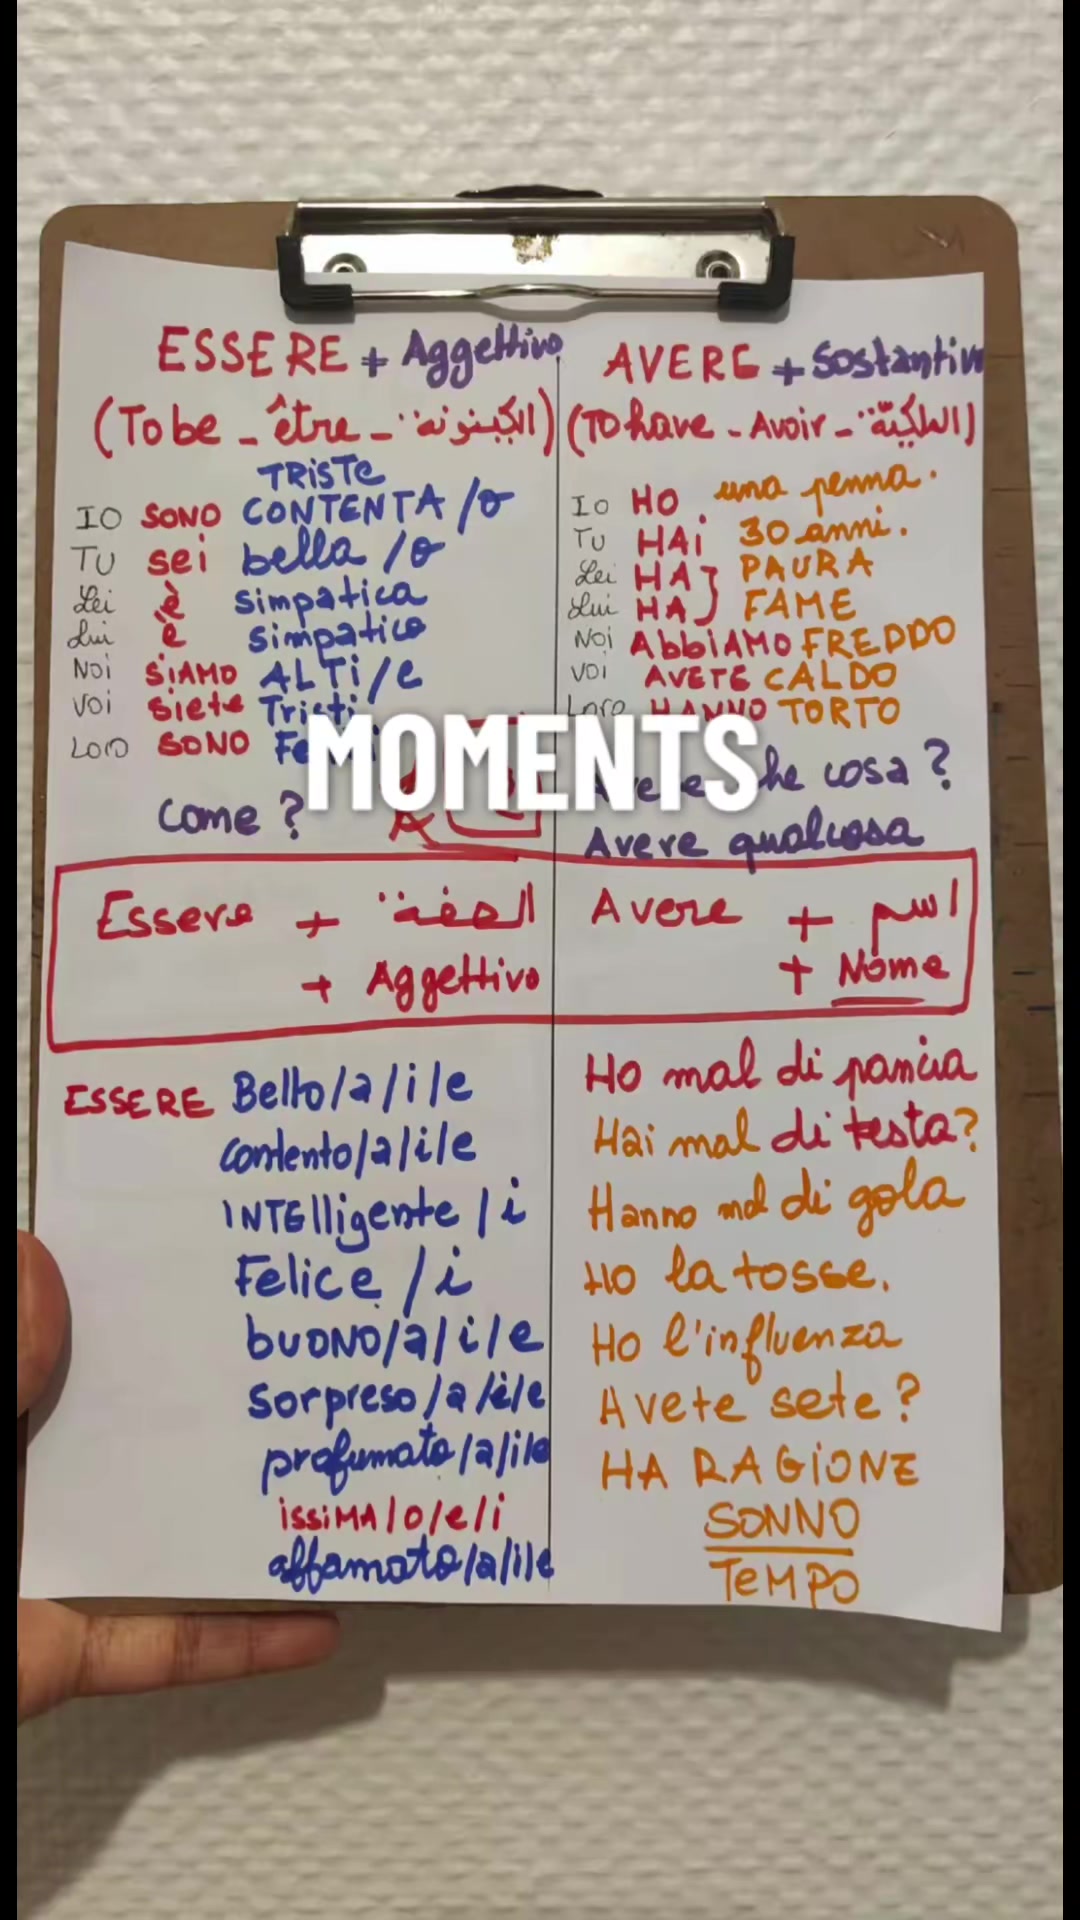 ESSERE + Aggettivo
(To be - être - الكينونة)
TRISTE
IO SONO CONTENTA/o
TU sei bella/o
Lei è simpatica
Lui è simpatico
NOI SIAMO ALTI/e
VOI siete Tristi
LORO SONO
Come?
AVERE + Sostantiv
(To have - Avoir - الملكية)
Io HO una penna.
TU HAi 30 anni.
Lei HA PAURA
Lui HA FAME
NOI AbbiAMO FREDDO
VOI AVETE CALDO
Loro HANNO TORTO
MOMENTS
Avere che cosa?
Avere qualcosa
Essere + الصفة
+ Aggettivo
Avere + اسم
+ Nome
ESSERE Bello/a/i/e
contento/a/i/e
INTElligente/i
Felice/i
buONO/a/i/e
Sorpreso/a/i/e
profumato/a/i/e
issiMA/o/e/i
affamato/a/i/e
Ho mal di pancia
Hai mal di testa?
Hanno mal di gola
HO la tosse.
Ho l'influenza
Avete sete?
HA RAGiONE
SONNO
TeMPO